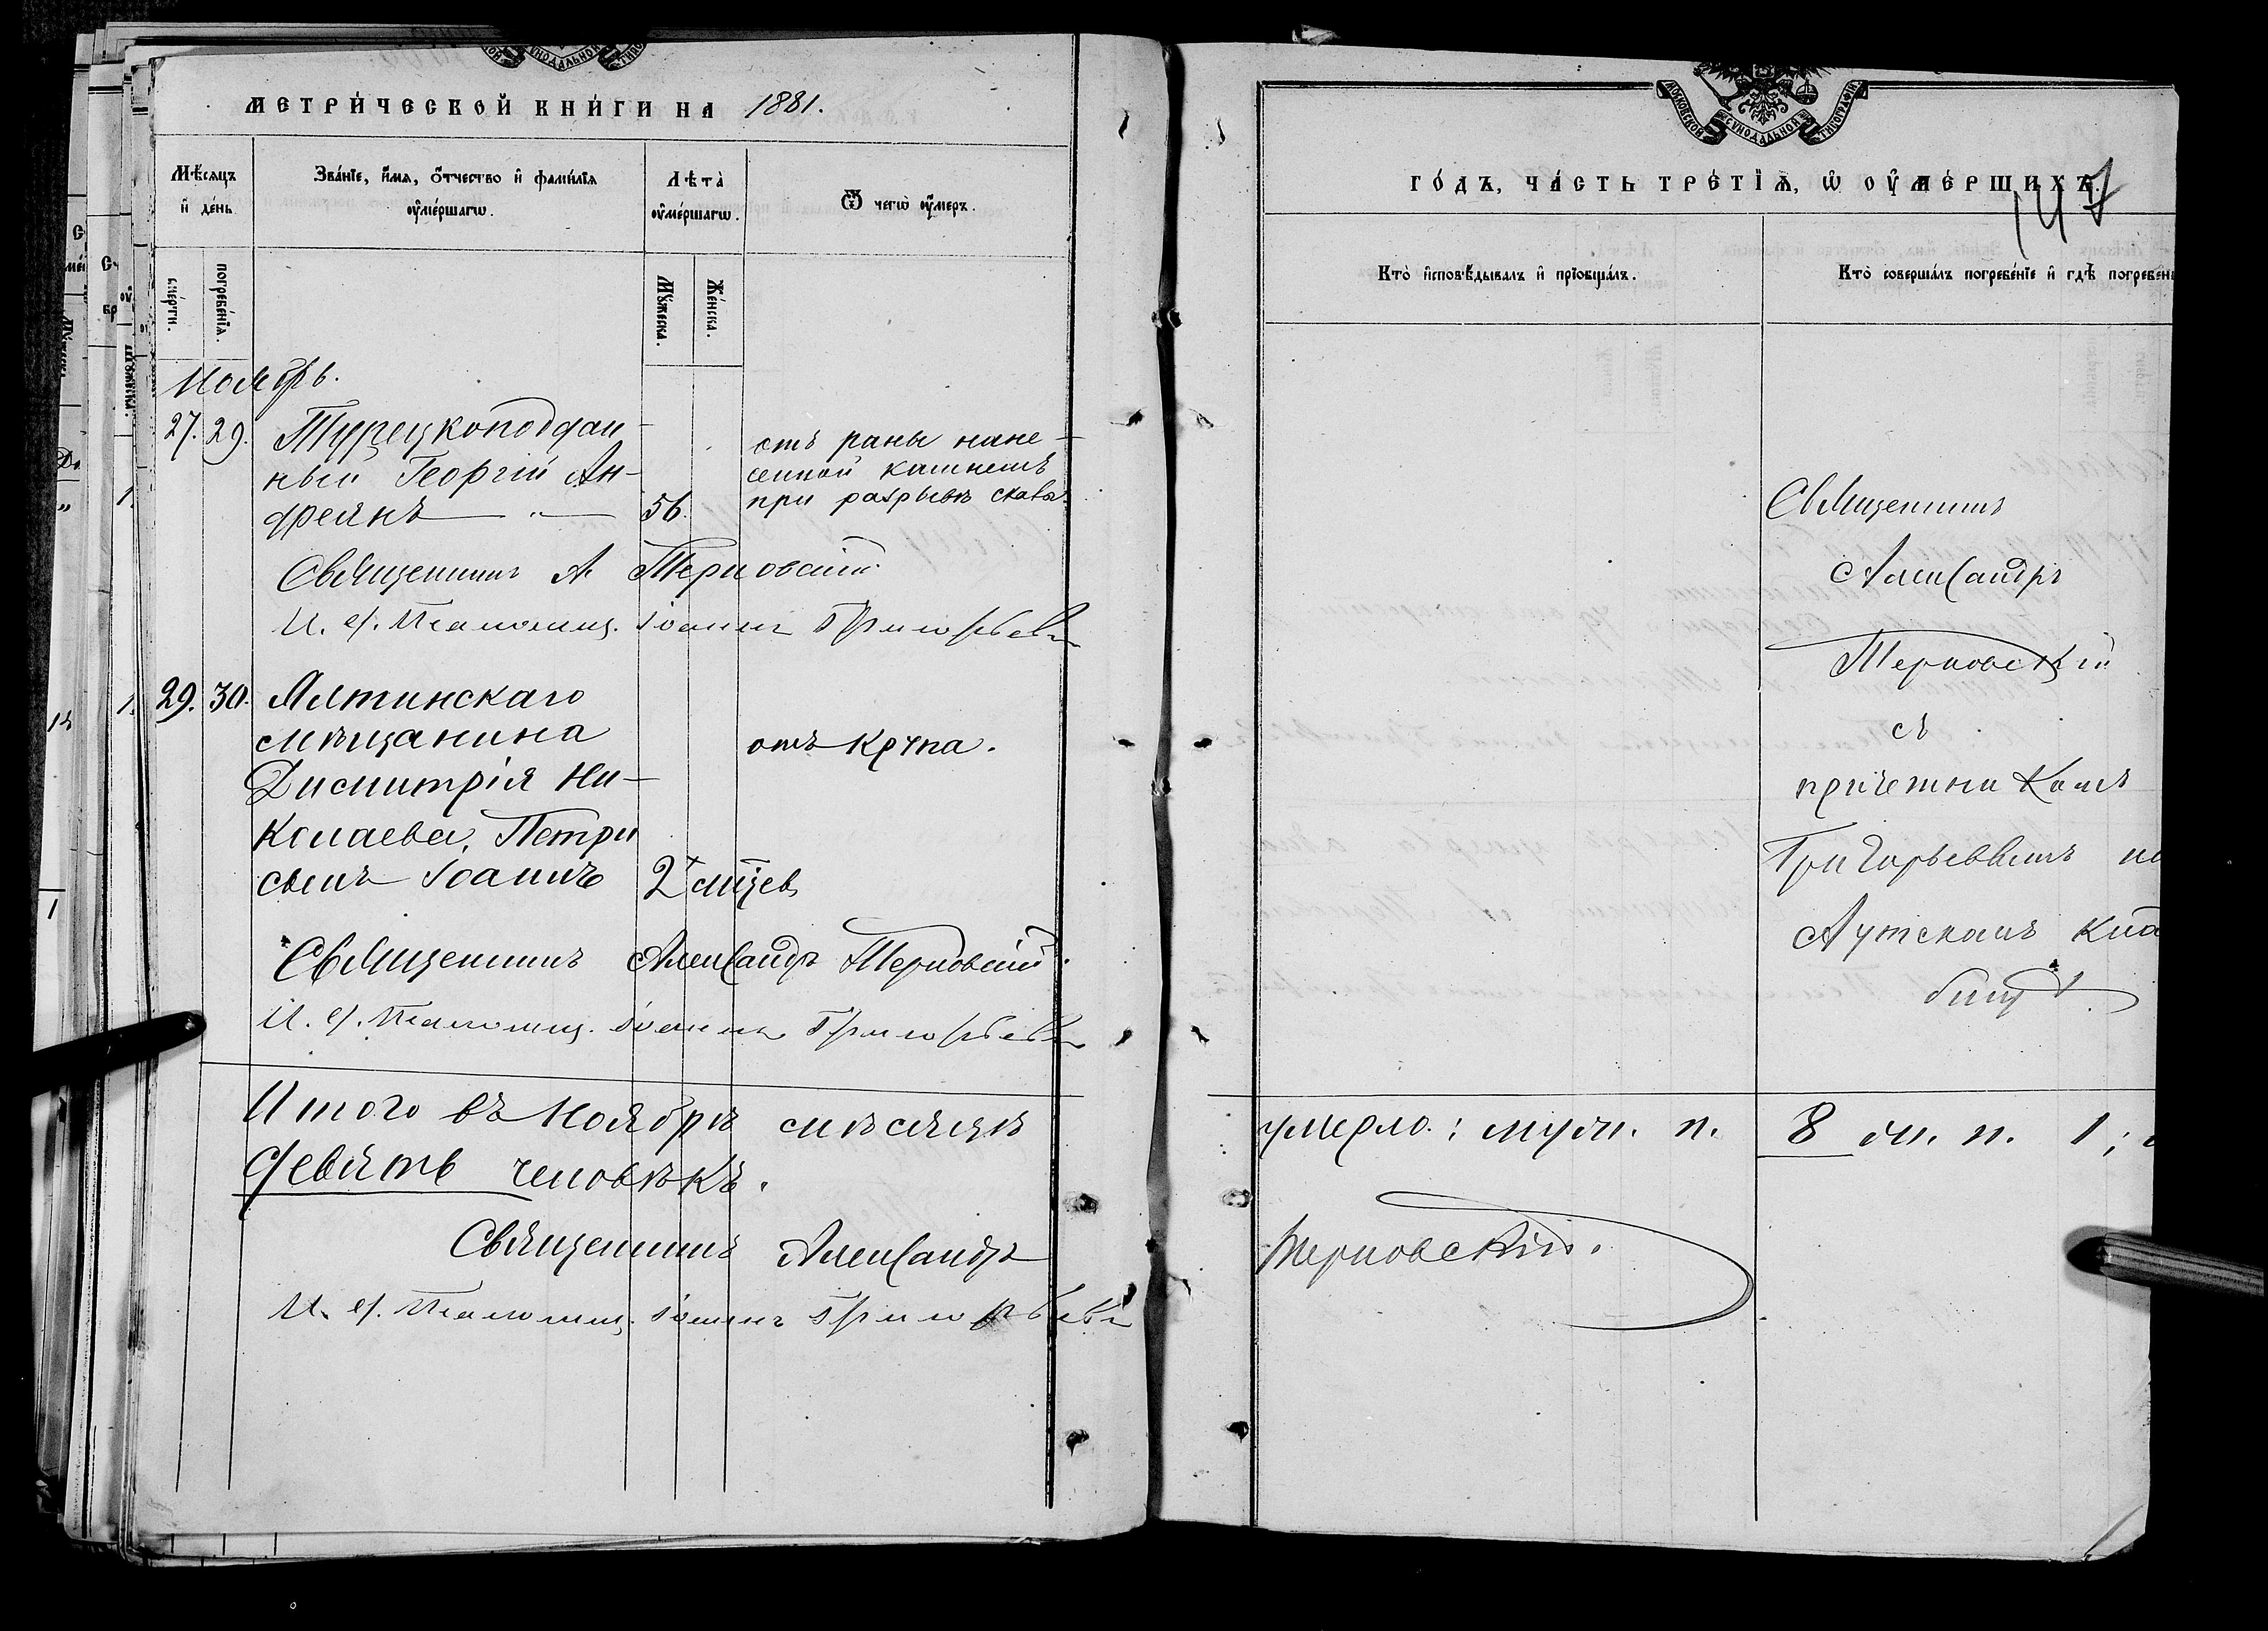 МЕТРИЧЕСКОЙ КНИГИ НА 1881.
Мѣсяцъ и день.
Званіе, имя, отчество и фамилія умершагѡ.
Лѣта умершагѡ.
Ѿ чегѡ умеръ.
смерти.
погребенія.
Мужеска.
Женска.
Ноябрь.
27. 29. Турецкоподдан-
ный Георгій Ан-
дреянъ — " — 56.
отъ раны нане-
сенной камнемъ
при разрывѣ скалы.
Священникъ А. Терновскій
И. д. Псаломщ. Іоаннъ Григорьевъ
29. 30. Ялтинскаго
мѣщанина
Димитрія Ни-
колаева Петри
сынъ Іоаннъ 2 мѣсцев
отъ крупа.
Священникъ Александръ Терновскій.
И. д. Псаломщ. Іоаннъ Григорьевъ
Итого въ Ноябрѣ мѣсяцѣ
девять человѣкъ.
Священникъ Александръ
И. д. Псаломщ. Іоаннъ Григорьевъ
МОСКОВСКОЙ СУНОДАЛЬНОЙ ТИПОГРАФІИ
ГОДЪ, ЧАСТЬ ТРЕТІЯ, Ѡ УМЕРШИХЪ.
147
Кто исповѣдывалъ и пріобщалъ.
Кто совершалъ погребеніе и гдѣ погребен
Священникъ
Александръ
Терновскій
съ
причетникомъ
Григорьевымъ на
Аутскомъ кла
бищѣ.
умерло: муж. п. 8 ж. п. 1;
Терновскій.